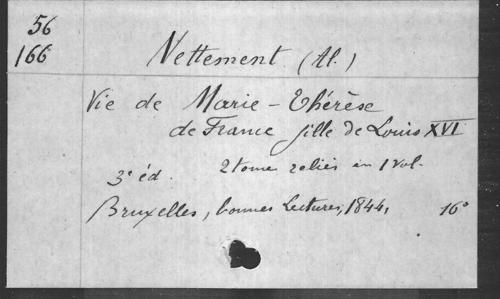 56
166
Nettement (Al.)
Vie de Marie-Thérèse
de France fille de Louis XVI
3e éd. 2 tome reliés en 1 vol.
Bruxelles, bonnes Lectures, 1844, 16°